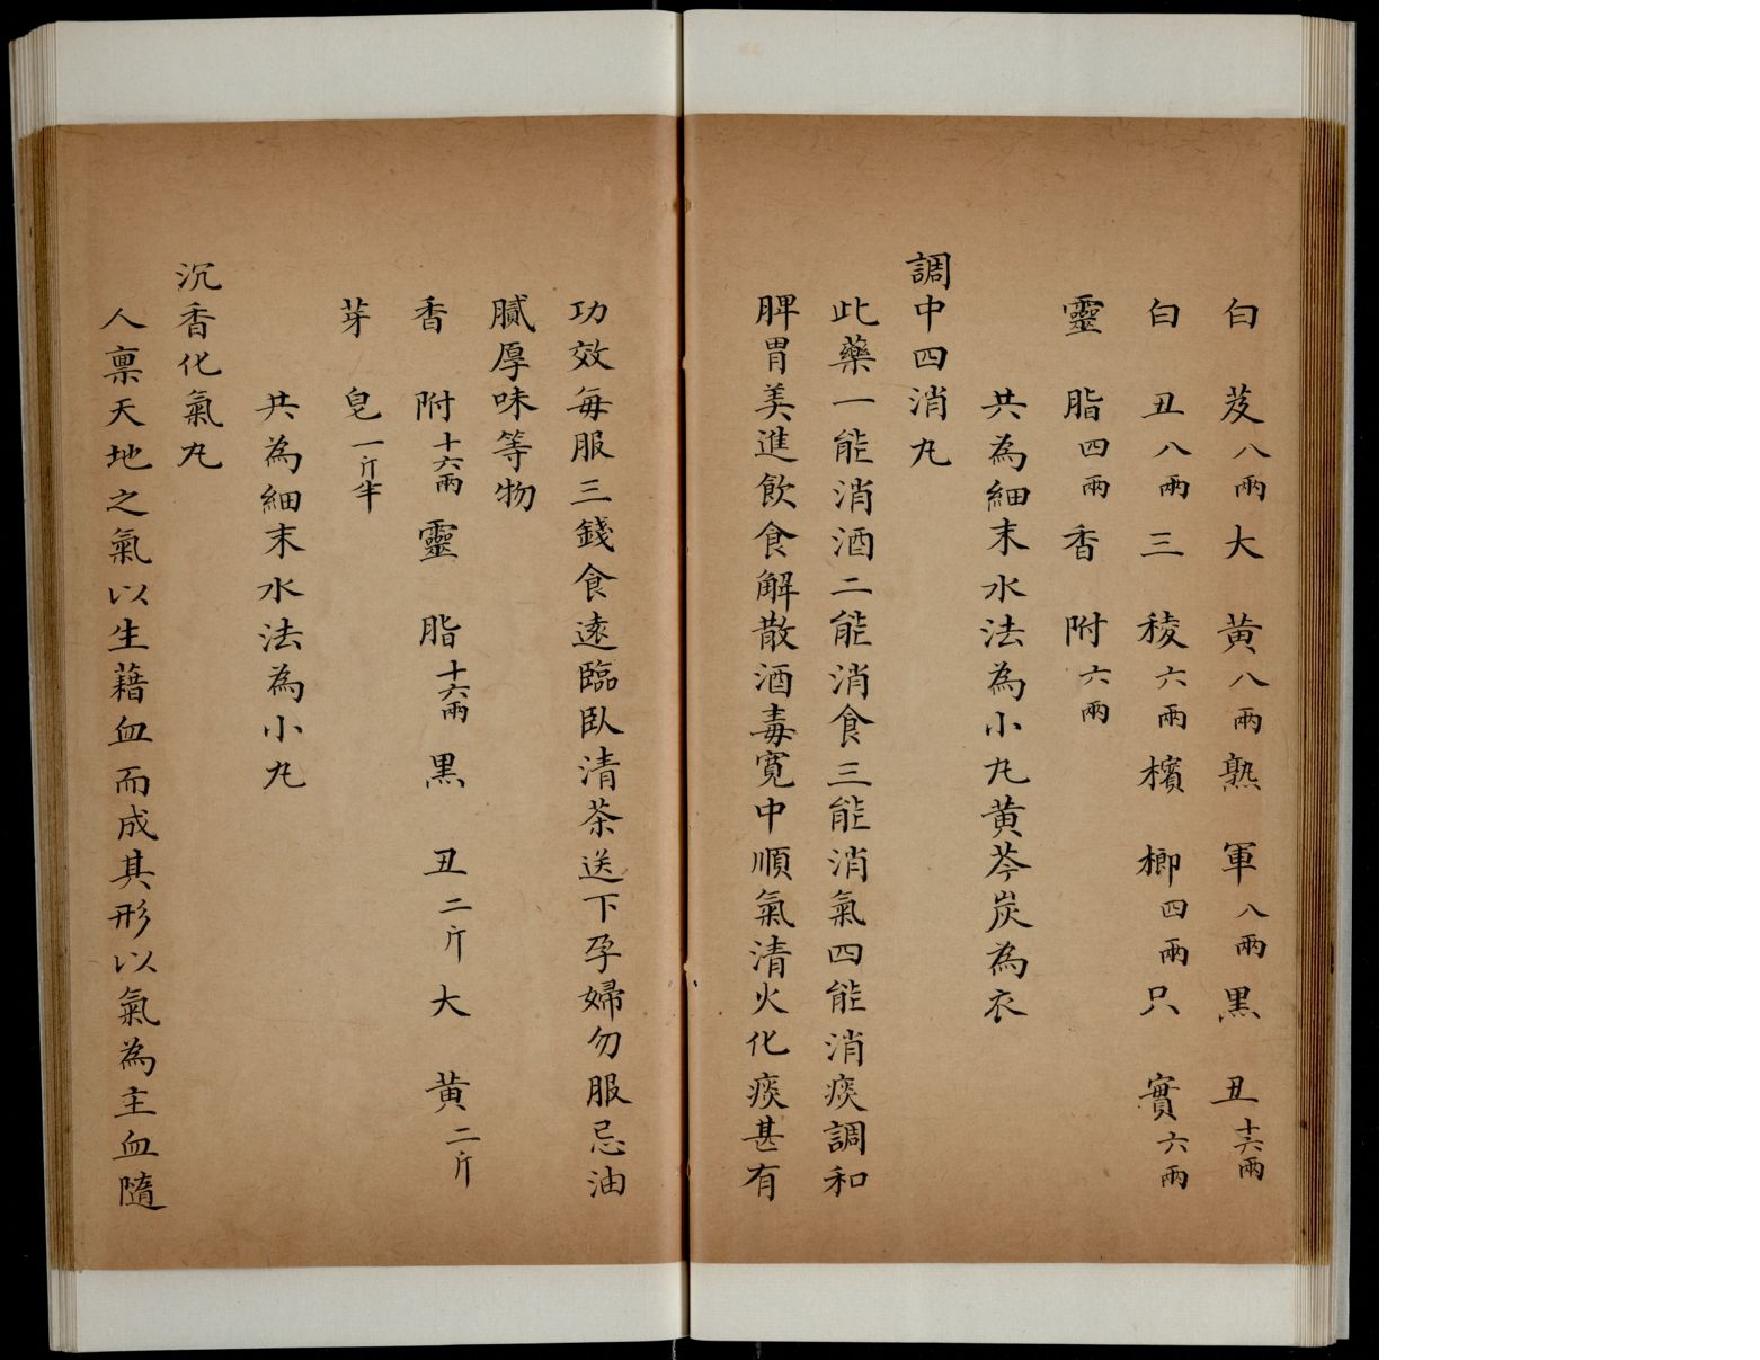 白芨八兩大黃八兩熟軍八兩黑丑十六兩
白丑八兩三稜六兩檳榔四兩只實六兩
靈脂四兩香附六兩
共為細末水法為小丸黃芩炭為衣
調中四消丸
此藥一能消酒二能消食三能消氣四能消痰調和
脾胃美進飲食解散酒毒寬中順氣清火化痰甚有
功效每服三錢食遠臨臥清茶送下孕婦勿服忌油
膩厚味等物
香附十六兩靈脂十六兩黑丑二斤大黃二斤
芽皂一斤半
共為細末水法為小丸
沉香化氣丸
人禀天地之氣以生藉血而成其形以氣為主血隨